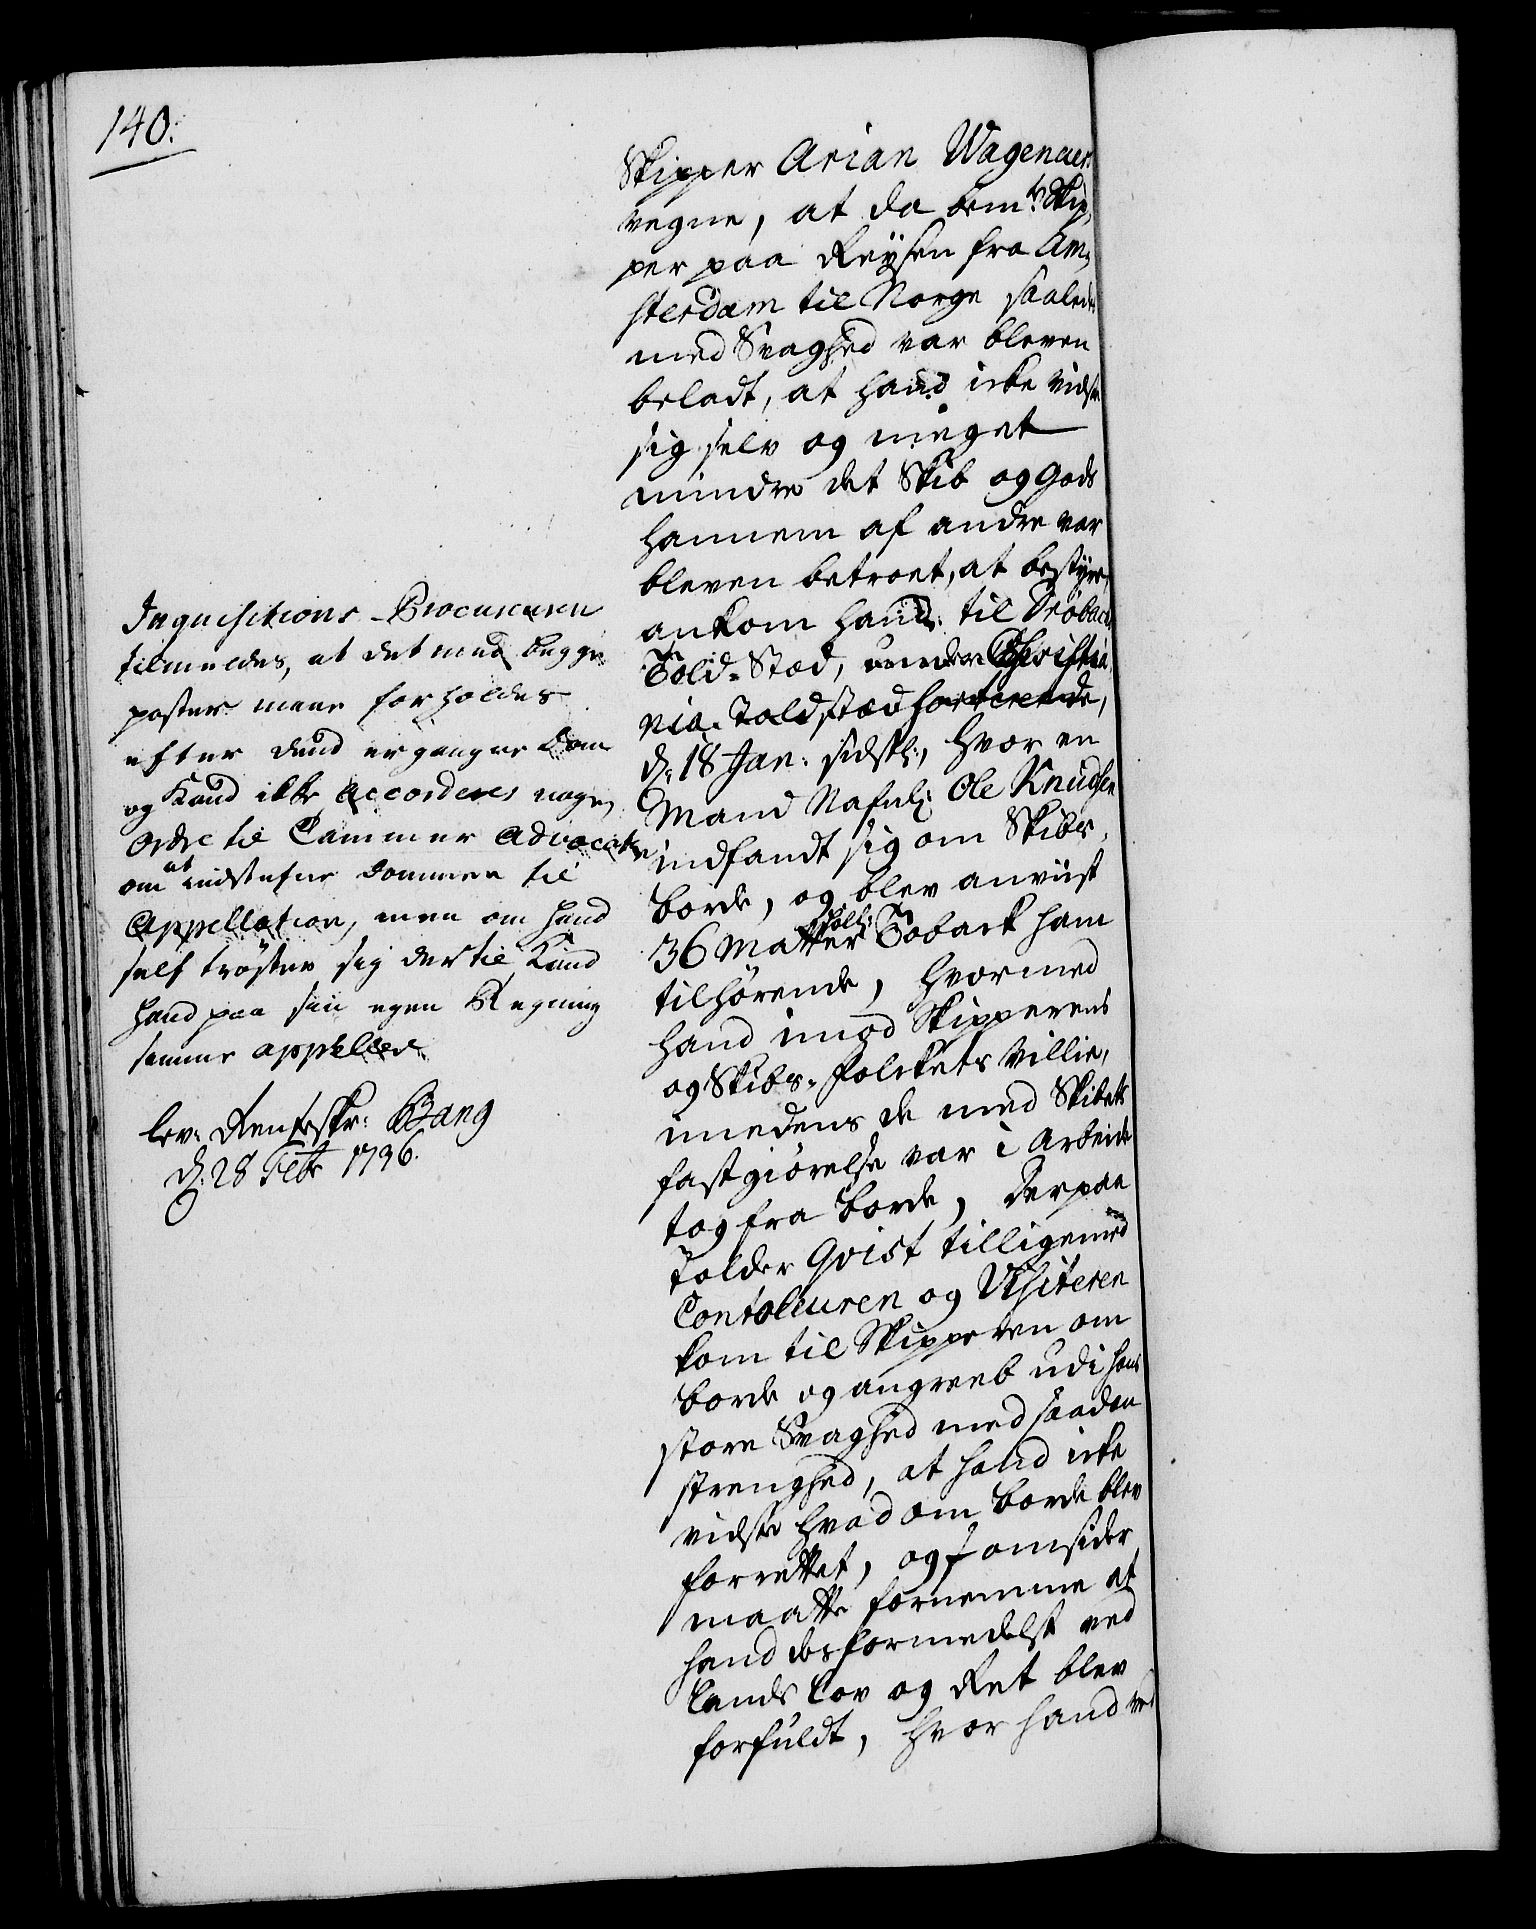 140:
Skipper Arian Wagenaers
vegne, at da bem.te Skip-
per paa Reysen fra Am-
sterdam til Norge saaledes
med Svaghed var bleven
beladt, at hand icke vidste
sig selv og meget
mindre det Skib og Gods
hannem af andre var
bleven betroet, at bestyre,
ankom hand til Drøbacks
Told-Stæd, under Christia-
nia Toldstæd sorterende,
d. 18 Jan: sidstl:, hvor en
Mand Nafnl: Ole Knudsen
indfandt sig om Skibs-
borde, og blev anviist
36 Matter Toback ham
tilhørende, hvormed
hand imod Skipperens
og Skibs-folckets villie,
imedens de med Skibets
fastgiørelse var i Arbeide
tog fra borde, derpaa
Tolder Qvist tilligemed
Contoleuren og Visiteren
kom til Skipperen om
borde og angreeb udi hans
store Svaghed med saadan
strenghed, at hand icke
vidste hvad om borde blev
forrettet, og omsider
maatte fornemme at
hand desformedelst ved
Lands Lov og Ret blev
forfuldt, hvor hand ved
Inquisitions-Procureuren
tilmeldes, at det med begge
poster maae forholdes
efter dend ergangne Dom
og Kand ikke accorderes nogen
Ordre til Cammer Advocaten
om at indstefne dommen til
Appellation, men om hand
self trøster sig dertil, Kand
hand paa sin egen Regning
samme appellere
lev: Renteskr: Bang
d. 28 Febr 1736.